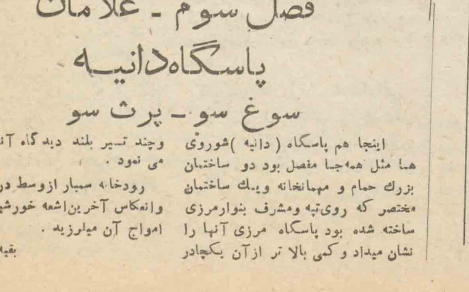 فصل سوم - غلامان
پاسگاه دانیه
سوغ سو - پرث سو
اینجا هم پاسگاه ( دانیه ) شوروی
هما مثل همه جا مفصل بود دو ساختمان
بزرك حمام و مهمانخانه ویك ساختمان
مختصر که روی تپه ومشرف بنوار مرزی
ساخته شده بود پاسگاه مرزی آنها را
نشان میداد و کمی بالا تر از آن یکچادر
وچند تسیر بلند دیدگاه آنـ
می نمود .
رودخانه سیار از وسط در
وانعکاس آخرین اشعه خورشیـ
امواج آن میلرزید .
بقیه